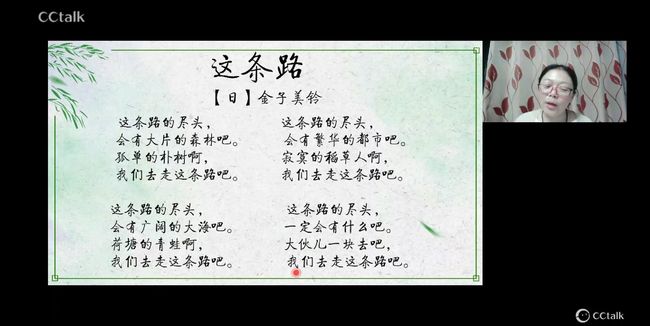 CCtalk
这条路
【日】金子美铃
这条路的尽头，
会有大片的森林吧。
孤单的朴树啊，
我们去走这条路吧。
这条路的尽头，
会有繁华的都市吧。
寂寞的稻草人啊，
我们去走这条路吧。
这条路的尽头，
会有广阔的大海吧。
荷塘的青蛙啊，
我们去走这条路吧。
这条路的尽头，
一定会有什么吧。
大伙儿一块去吧，
我们去走这条路吧。
CCtalk